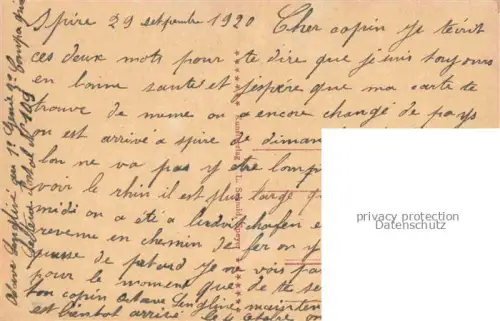 Spire 29 setpembre 1920 Cher copin je t'écrit
ces deux mots pour te dire que je suis toujours
en bonne sante et j'espére que ma carte te
trouve de meme on a encore changé de pays
on est arrivé a spire de diman
lon ne va pas y etre lomp
voir le rhin il est plus large q
midi on a été a ludwichafen e
revenue en chemin de fer on y
de petard je ne vois pa
pour le moment que de te se
ton copin Octave maisten
est bientot arrivé le
Octave au 1º Genie 9º Compagnie
Secteur Postal Nº 109
Kunstverlag
privacy protection
Datenschutz